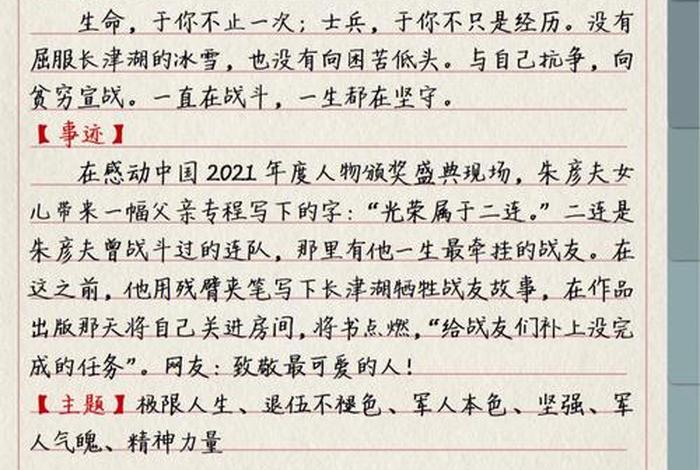 生命，于你不止一次；士兵，于你不只是经历。没有
屈服长津湖的冰雪，也没有向困苦低头。与自己抗争，向
贫穷宣战。一直在战斗，一生都在坚守。
【事迹】
在感动中国2021年度人物颁奖盛典现场，朱彦夫女
儿带来一幅父亲专程写下的字：“光荣属于二连。”二连是
朱彦夫曾战斗过的连队，那里有他一生最牵挂的战友。在
这之前，他用残臂夹笔写下长津湖牺牲战友故事，在作品
出版那天将自己关进房间，将书点燃，“给战友们补上没完
成的任务”。网友：致敬最可爱的人！
【主题】极限人生、退伍不褪色、军人本色、坚强、军
人气魄、精神力量